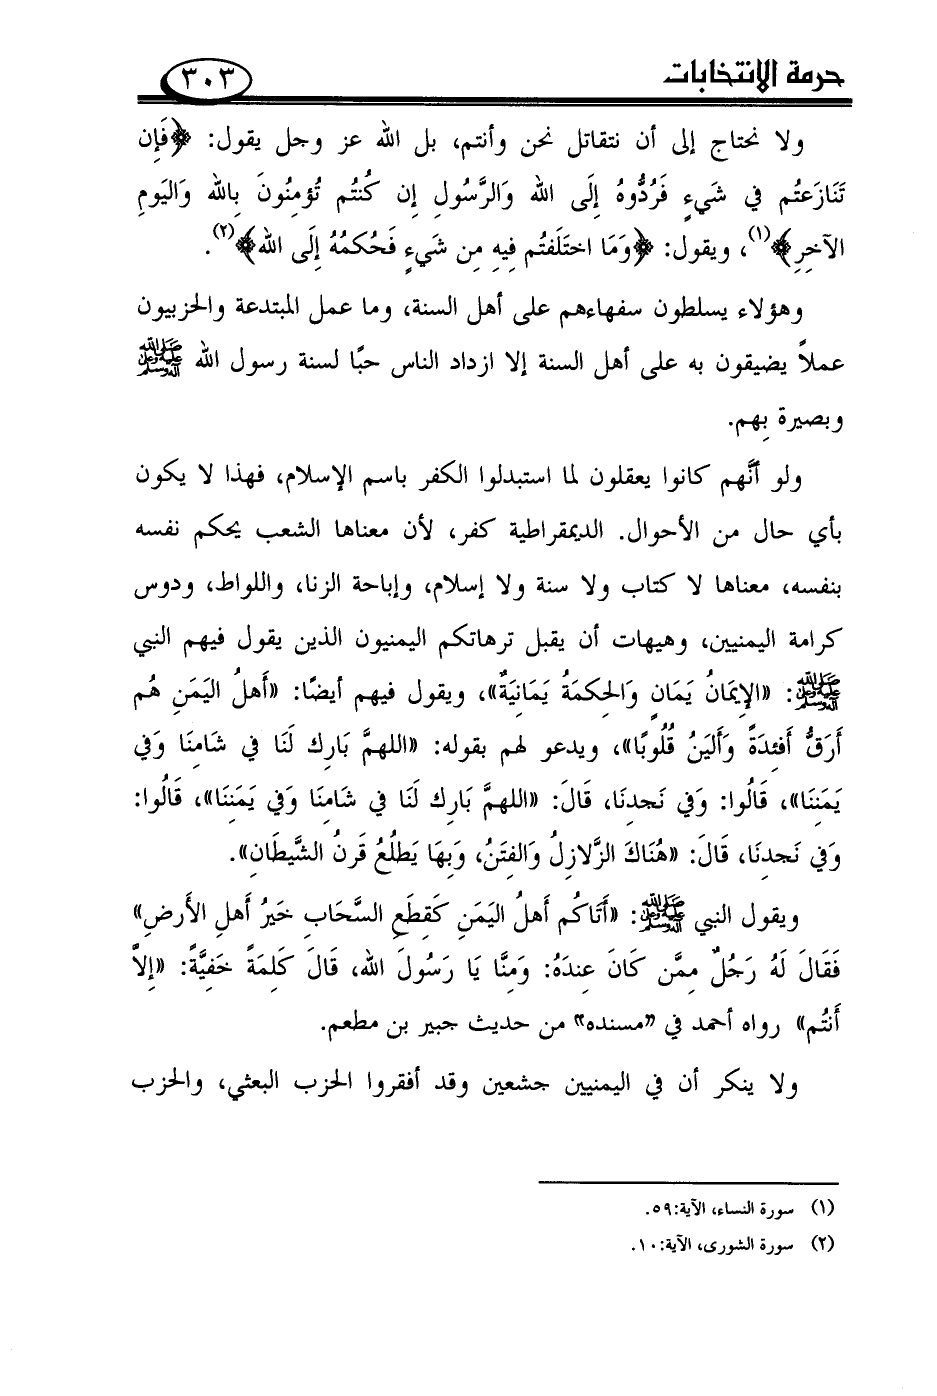 حرمة الانتخابات ٣٠٣
ولا نحتاج إلى أن نتقاتل نحن وأنتم، بل الله عز وجل يقول: ﴿فَإِن
تَنَازَعتُم في شَيءٍ فَرُدُّوهُ إِلَى الله وَالرَّسُولِ إِن كُنتُم تُؤمِنُونَ بِالله وَاليَومِ
الآخِرِ﴾(١)، ويقول: ﴿وَمَا اختَلَفتُم فِيهِ مِن شَيءٍ فَحُكمُهُ إِلَى الله﴾(٢).
وهؤلاء يسلطون سفهاءهم على أهل السنة، وما عمل المبتدعة والحزبيون
عملاً يضيقون به على أهل السنة إلا ازداد الناس حبًا لسنة رسول الله ﷺ
وبصيرة بِهم.
ولو أنَّهم كانوا يعقلون لما استبدلوا الكفر باسم الإسلام، فهذا لا يكون
بأي حال من الأحوال. الديمقراطية كفر، لأن معناها الشعب يحكم نفسه
بنفسه، معناها لا كتاب ولا سنة ولا إسلام، وإباحة الزنا، واللواط، ودوس
كرامة اليمنيين، وهيهات أن يقبل ترهاتكم اليمنيون الذين يقول فيهم النبي
ﷺ: «الإِيمَانُ يَمَانٍ وَالحِكمَةُ يَمَانِيَةٌ»، ويقول فيهم أيضًا: «أَهلُ اليَمَنِ هُم
أَرَقُّ أَفئِدَةً وَأَليَنُ قُلُوبًا»، ويدعو لهم بقوله: «اللهمَّ بَارِك لَنَا في شَامِنَا وَفي
يَمَنِنَا»، قَالُوا: وَفي نَجدِنَا، قَالَ: «اللهمَّ بَارِك لَنَا في شَامِنَا وَفي يَمَنِنَا»، قَالُوا:
وَفي نَجدِنَا، قَالَ: «هُنَاكَ الزَّلازِلُ وَالفِتَنُ، وَبِهَا يَطلُعُ قَرنُ الشَّيطَانِ».
ويقول النبي ﷺ: «أَتَاكُم أَهلُ اليَمَنِ كَقِطَعِ السَّحَابِ خَيرُ أَهلِ الأَرضِ»
فَقَالَ لَهُ رَجُلٌ مِمَّن كَانَ عِندَهُ: وَمِنَّا يَا رَسُولَ الله، قَالَ كَلِمَةً خَفِيَّةً: «إِلاَّ
أَنتُم» رواه أحمد في «مسنده» من حديث جبير بن مطعم.
ولا ينكر أن في اليمنيين جشعين وقد أفقروا الحزب البعثي، والحزب
(١) سورة النساء، الآية:٥٩.
(٢) سورة الشورى، الآية:١٠.